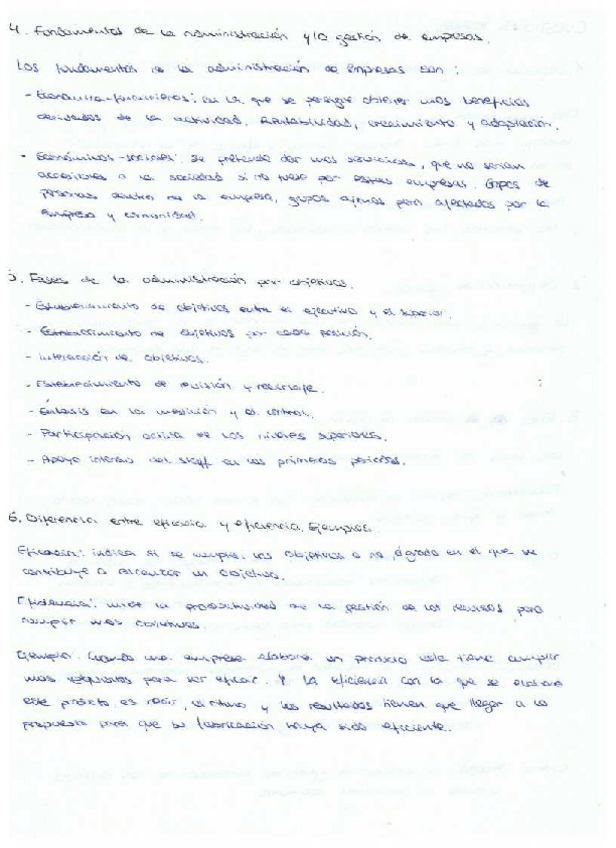 4. Fundamentos de la administración y la gestión de empresas.
Los fundamentos de la administración de empresas son:
- Económico-financieros: en la que se persigue obtener unos beneficios
derivados de la actividad. Rentabilidad, crecimiento y adaptación.
- Económicos-sociales: se pretende dar unos servicios, que no serían
accesibles a la sociedad si no fuese por estas empresas. Grupos de
personas dentro de la empresa, grupos ajenos pero afectados por la
empresa y comunidad.
5. Fases de la administración por objetivos.
- Establecimiento de objetivos entre el ejecutivo y el superior.
- Establecimiento de objetivos por cada posición.
- Interacción de objetivos.
- Establecimiento de revisión y reciclaje.
- Énfasis en la medición y el control.
- Participación activa de los niveles superiores.
- Apoyo intenso del staff en los primeros periodos.
6. Diferencia entre eficacia y eficiencia. Ejemplos.
Eficacia: indica si se cumple los objetivos o no, grado en el que se
contribuye a alcanzar un objetivo.
Eficiencia: mide la productividad de la gestión de los recursos para
cumplir unos objetivos.
Ejemplo: Cuando una empresa elabora un producto este tiene cumplir
unos requisitos para ser eficaz. Y la eficiencia con la que se elabora
este producto, es decir, el ritmo y los resultados tienen que llegar a lo
propuesto para que su fabricación haya sido eficiente.